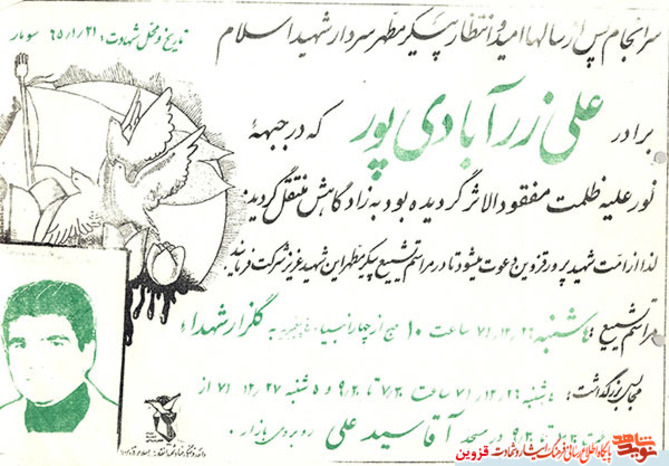 سرانجام پس از سالها امید و انتظار پیکر مطهر سردار شهید اسلام
تاریخ و محل شهادت: ۶۵/۱/۲۱ سومار
برادر علی زرآبادی پور که در جبههٔ
نور علیه ظلمت مفقودالاثر گردیده بود به زادگاهش منتقل گردید.
لذا از امت شهید پرور قزوین دعوت میشود تا در مراسم تشییع پیکر مطهر این شهید عزیز شرکت فرمایند.
مراسم تشییع: ۷۱/۱۲/۲۶ ساعت ۱۰ صبح از چهارانبیاء به گلزار شهداء
مجالس بزرگداشت: ۷۱/۱۲/۲۶ ساعت ۷/۳۰ تا ۹/۳۰ و ۵ شنبه ۷۱/۱۲/۲۷ از
تا ۹/۳۰ در مسجد آقا سید علی روبروی بازار.
نوید شاهد
پایگاه اطلاع رسانی فرهنگ ایثار و شهادت قزوین